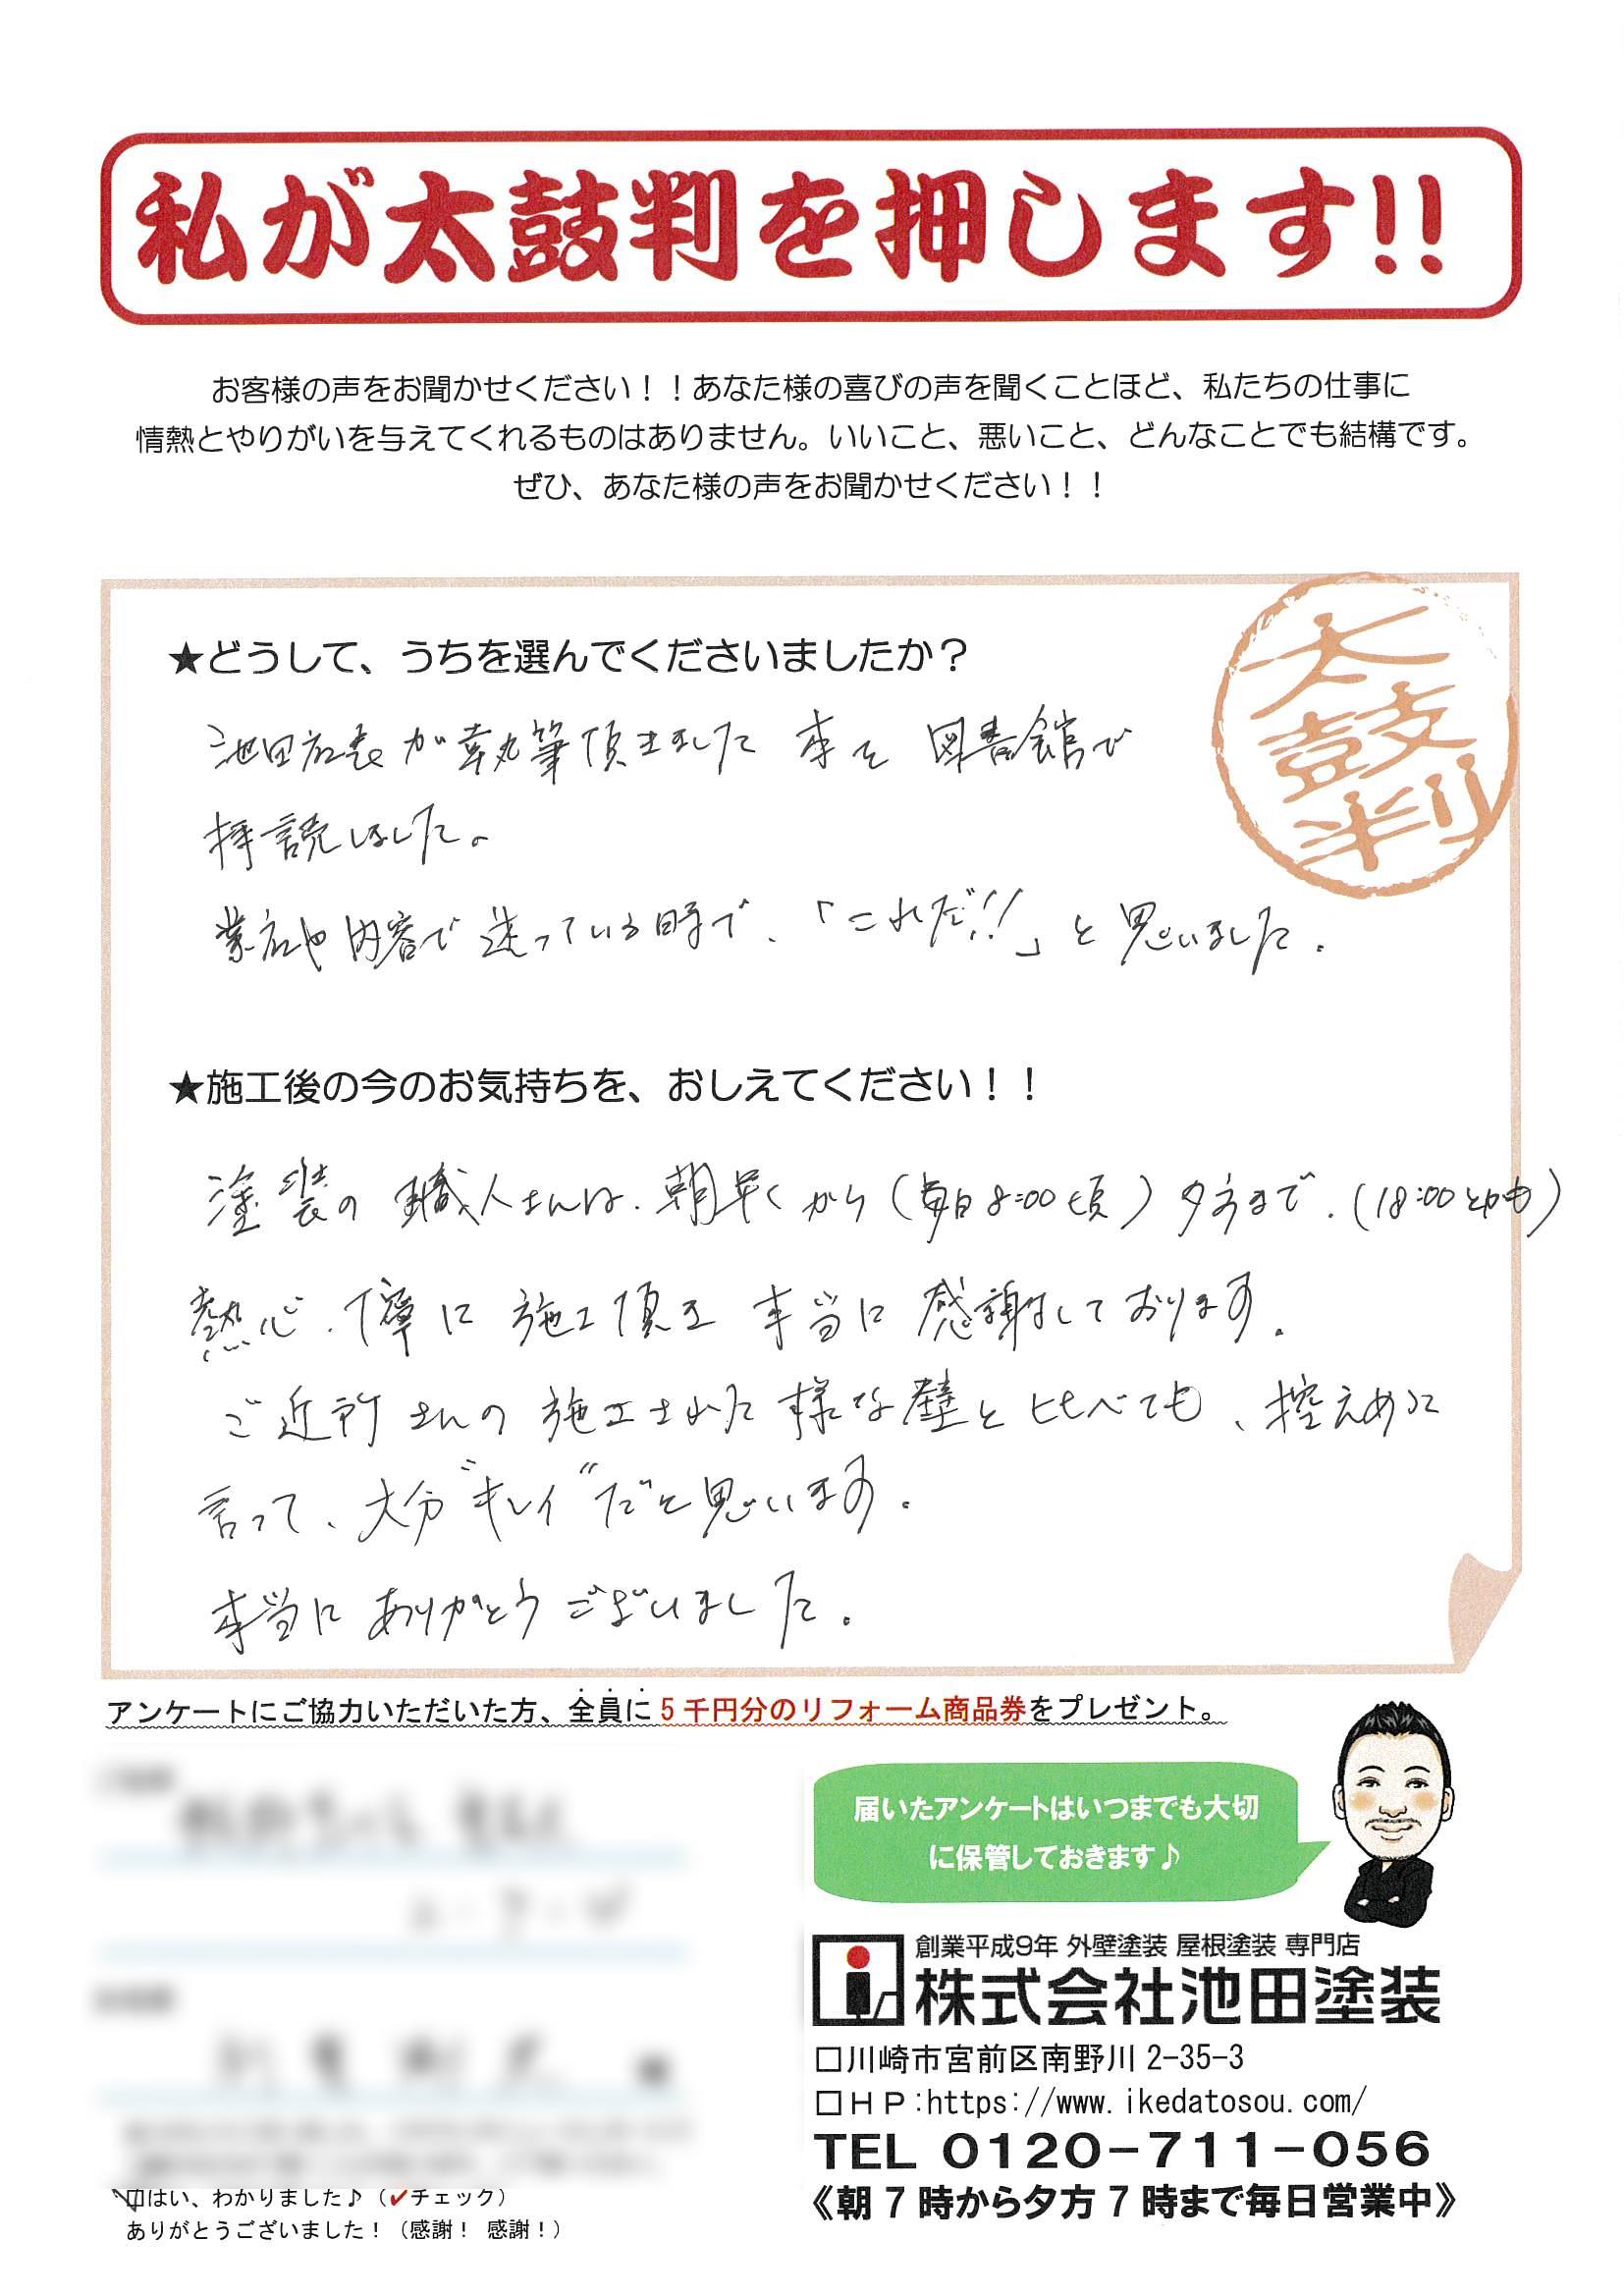 私が太鼓判を押します!!
お客様の声をお聞かせください！！あなた様の喜びの声を聞くことほど、私たちの仕事に
情熱とやりがいを与えてくれるものはありません。いいこと、悪いこと、どんなことでも結構です。
ぜひ、あなた様の声をお聞かせください！！
太鼓判
★どうして、うちを選んでくださいましたか？
池田社長が執筆頂きました 本を 図書館で
拝読しました。
業者や内容で迷っている時で、「これだ!!」と思いました。
★施工後の今のお気持ちを、おしえてください！！
塗装の職人さんは、朝早くから(毎日8:00頃)夕方まで、(18:00とかも)
熱心、丁寧に施工頂き 本当に感謝しております。
ご近所さんの施工された様な壁と比べても、控えめに
言って、大分"キレイ"だと思います。
本当にありがとうございました。
アンケートにご協力いただいた方、全員に5千円分のリフォーム商品券をプレゼント。
届いたアンケートはいつまでも大切
に保管しておきます♪
創業平成9年 外壁塗装 屋根塗装 専門店
株式会社池田塗装
□川崎市宮前区南野川2-35-3
□ＨＰ:https://www.ikedatosou.com/
TEL 0120-711-056
《朝7時から夕方7時まで毎日営業中》
□はい、わかりました♪（✔チェック）
ありがとうございました！（感謝！ 感謝！）